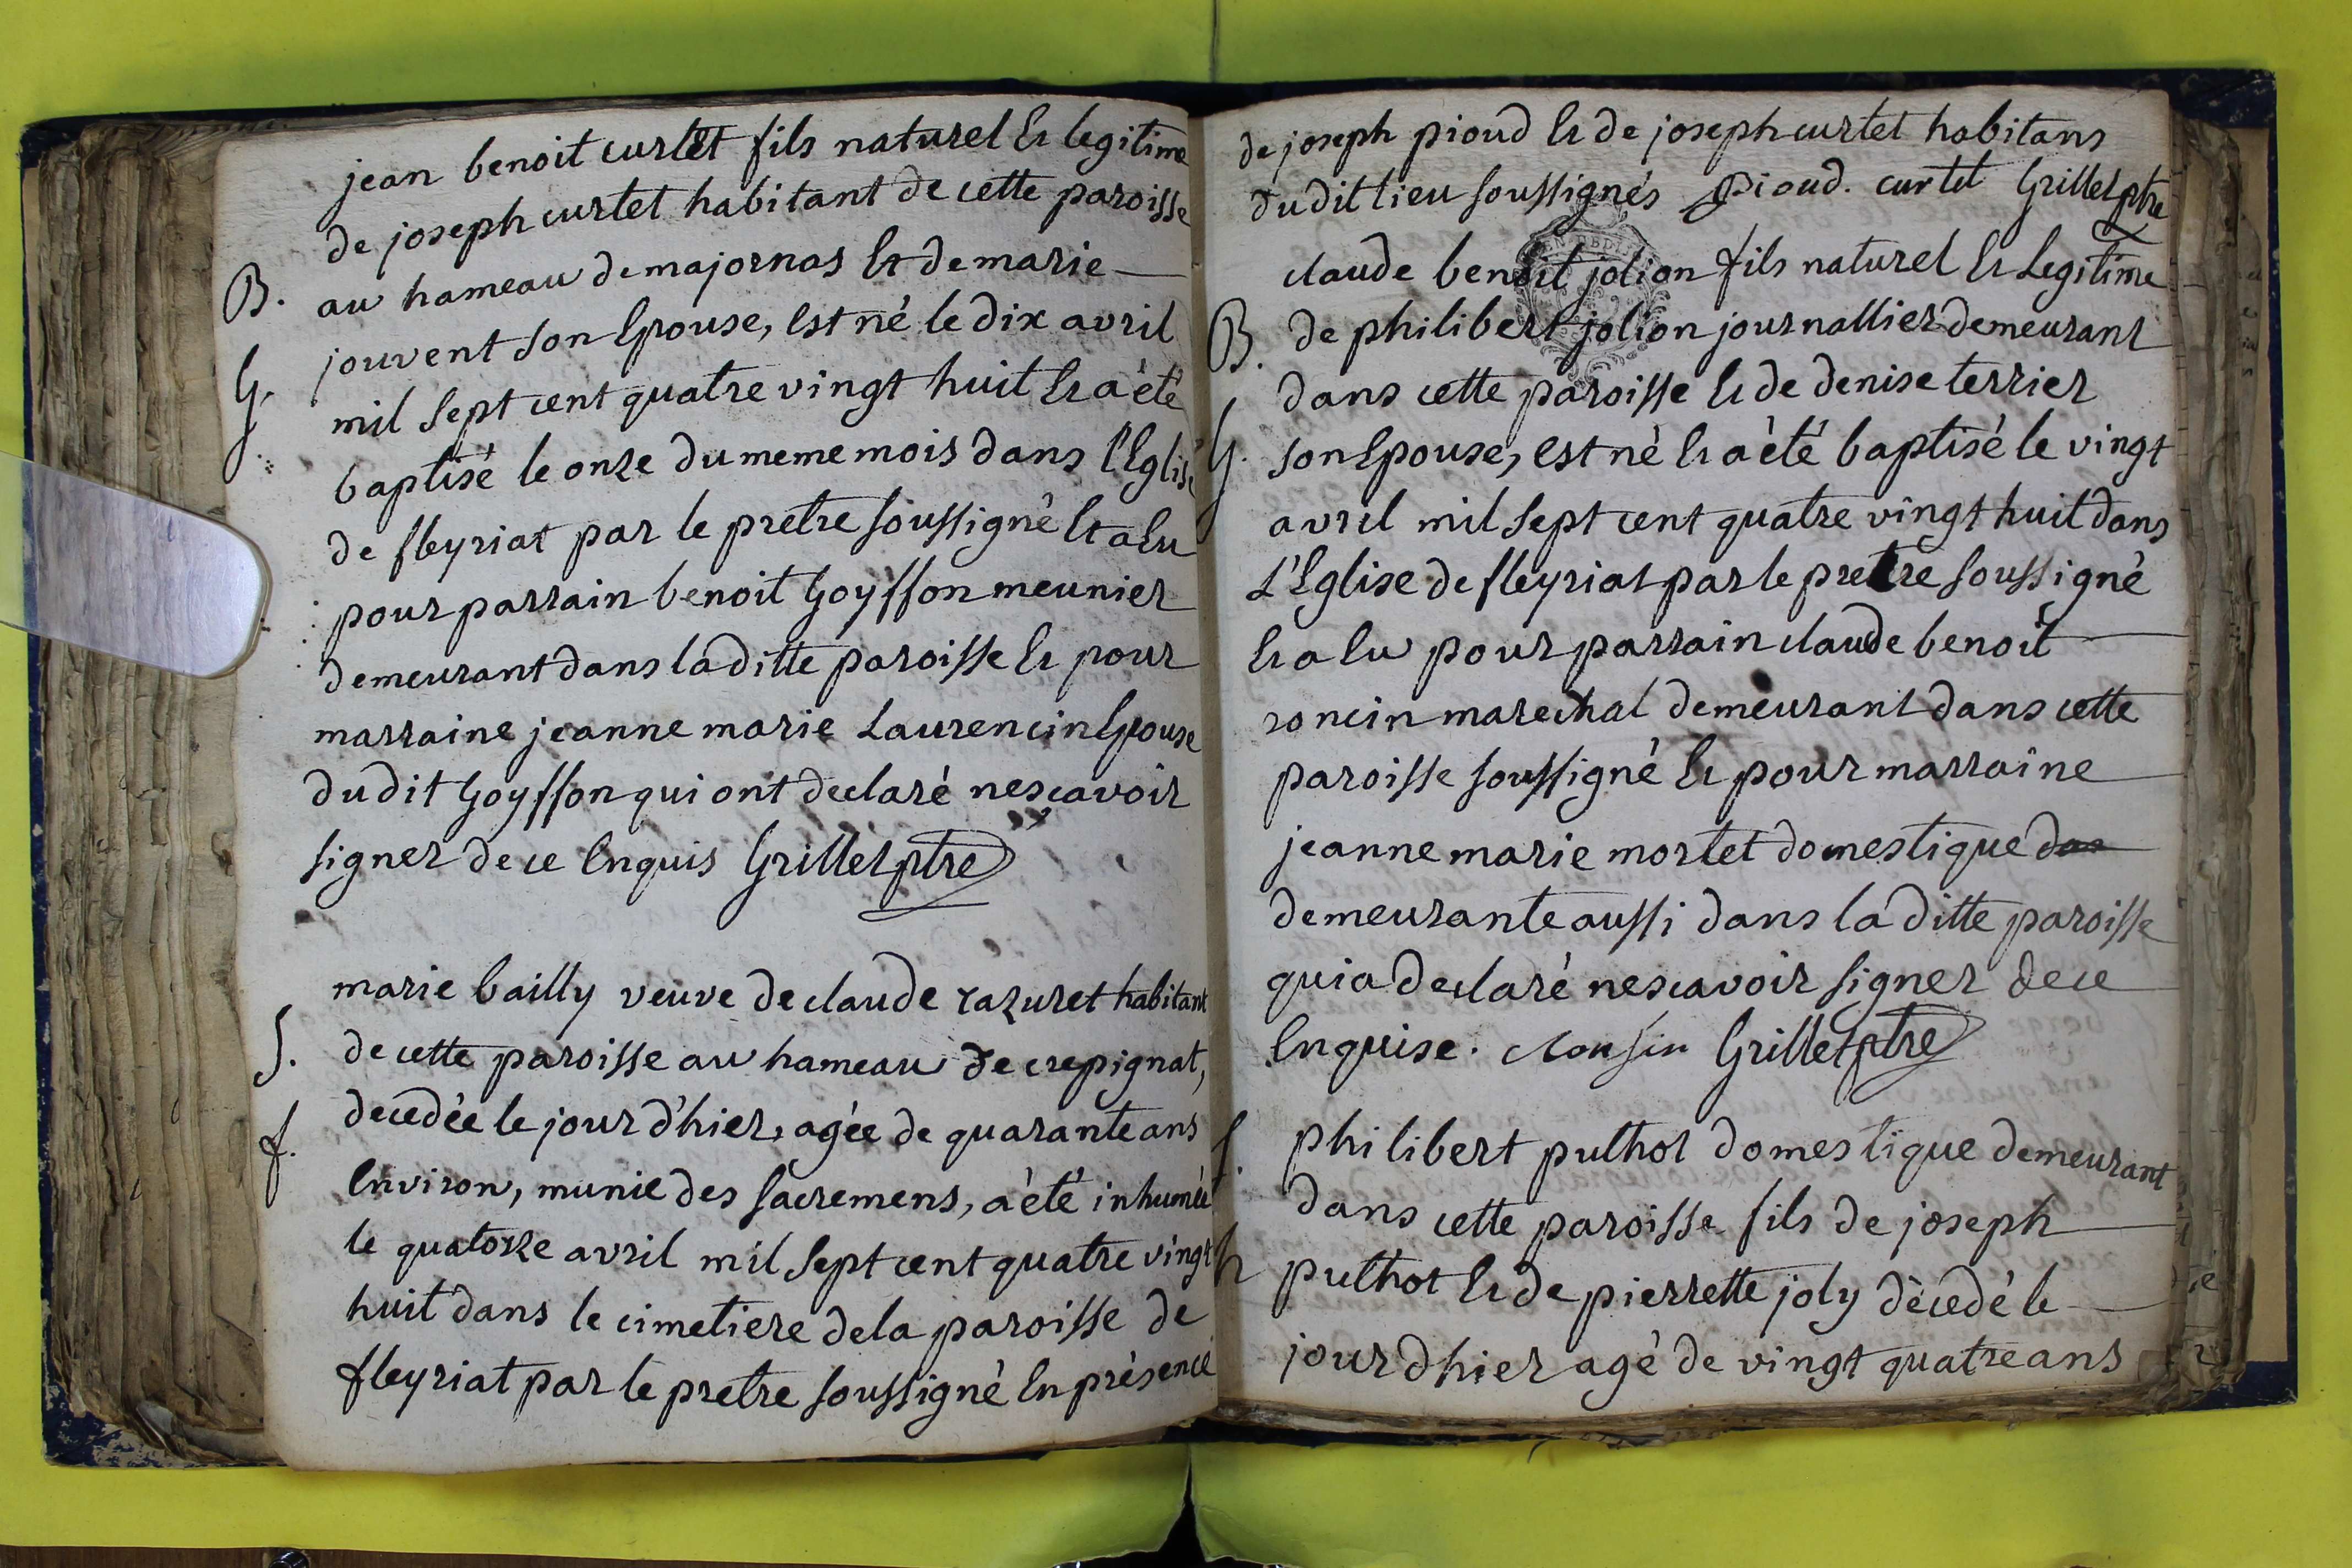 jean benoit curtet fils naturel Et legitime
de joseph curtet habitant de cette paroisse
B. au hameau de majornas Et de marie
jouvent son Epouse, Est né le dix avril
G. mil sept cent quatre vingt huit Et a èté
baptisé le onze du meme mois dans l'Eglise
de fleyriat par le pretre soussigné Et a Eu
pour parrain benoit Goyffon meunier
demeurant dans la ditte paroisse Et pour
marraine jeanne marie Laurencin Epouse
dudit Goyffon qui ont declaré ne scavoir
signer de ce Enquis Grillet ptre
marie bailly veuve de claude razuret habitant
S. de cette paroisse au hameau de crepignat,
decedée le jour d'hier, agée de quarante ans
f. Environ, munie des sacremens, a èté inhumée
le quatorze avril mil sept cent quatre vingt
huit dans le cimetiere de la paroisse de
fleyriat par le pretre soussigné En présence
de joseph pioud Et de joseph curtet habitans
dudit lieu soussignés Pioud. curtet Grillet ptre
claude benoit jolion fils naturel Et Legitime
B. de philibert jolion journallier demeurant
dans cette paroisse Et de denise terrier
G. son Epouse, Est né Et a èté baptisé le vingt
avril mil sept cent quatre vingt huit dans
L'Eglise de fleyriat par le pretre soussigné
Et a Eu pour parrain claude benoit
roncin marechal demeurant dans cette
paroisse soussigné Et pour marraine
jeanne marie mortet domestique
demeurante aussi dans la ditte paroisse
qui a declaré ne scavoir signer de ce
Enquise. Grillet ptre
S. philibert puthot domestique demeurant
dans cette paroisse fils de joseph
h puthot Et de pierrette joly dècedé le
jour dhier agé de vingt quatre ans